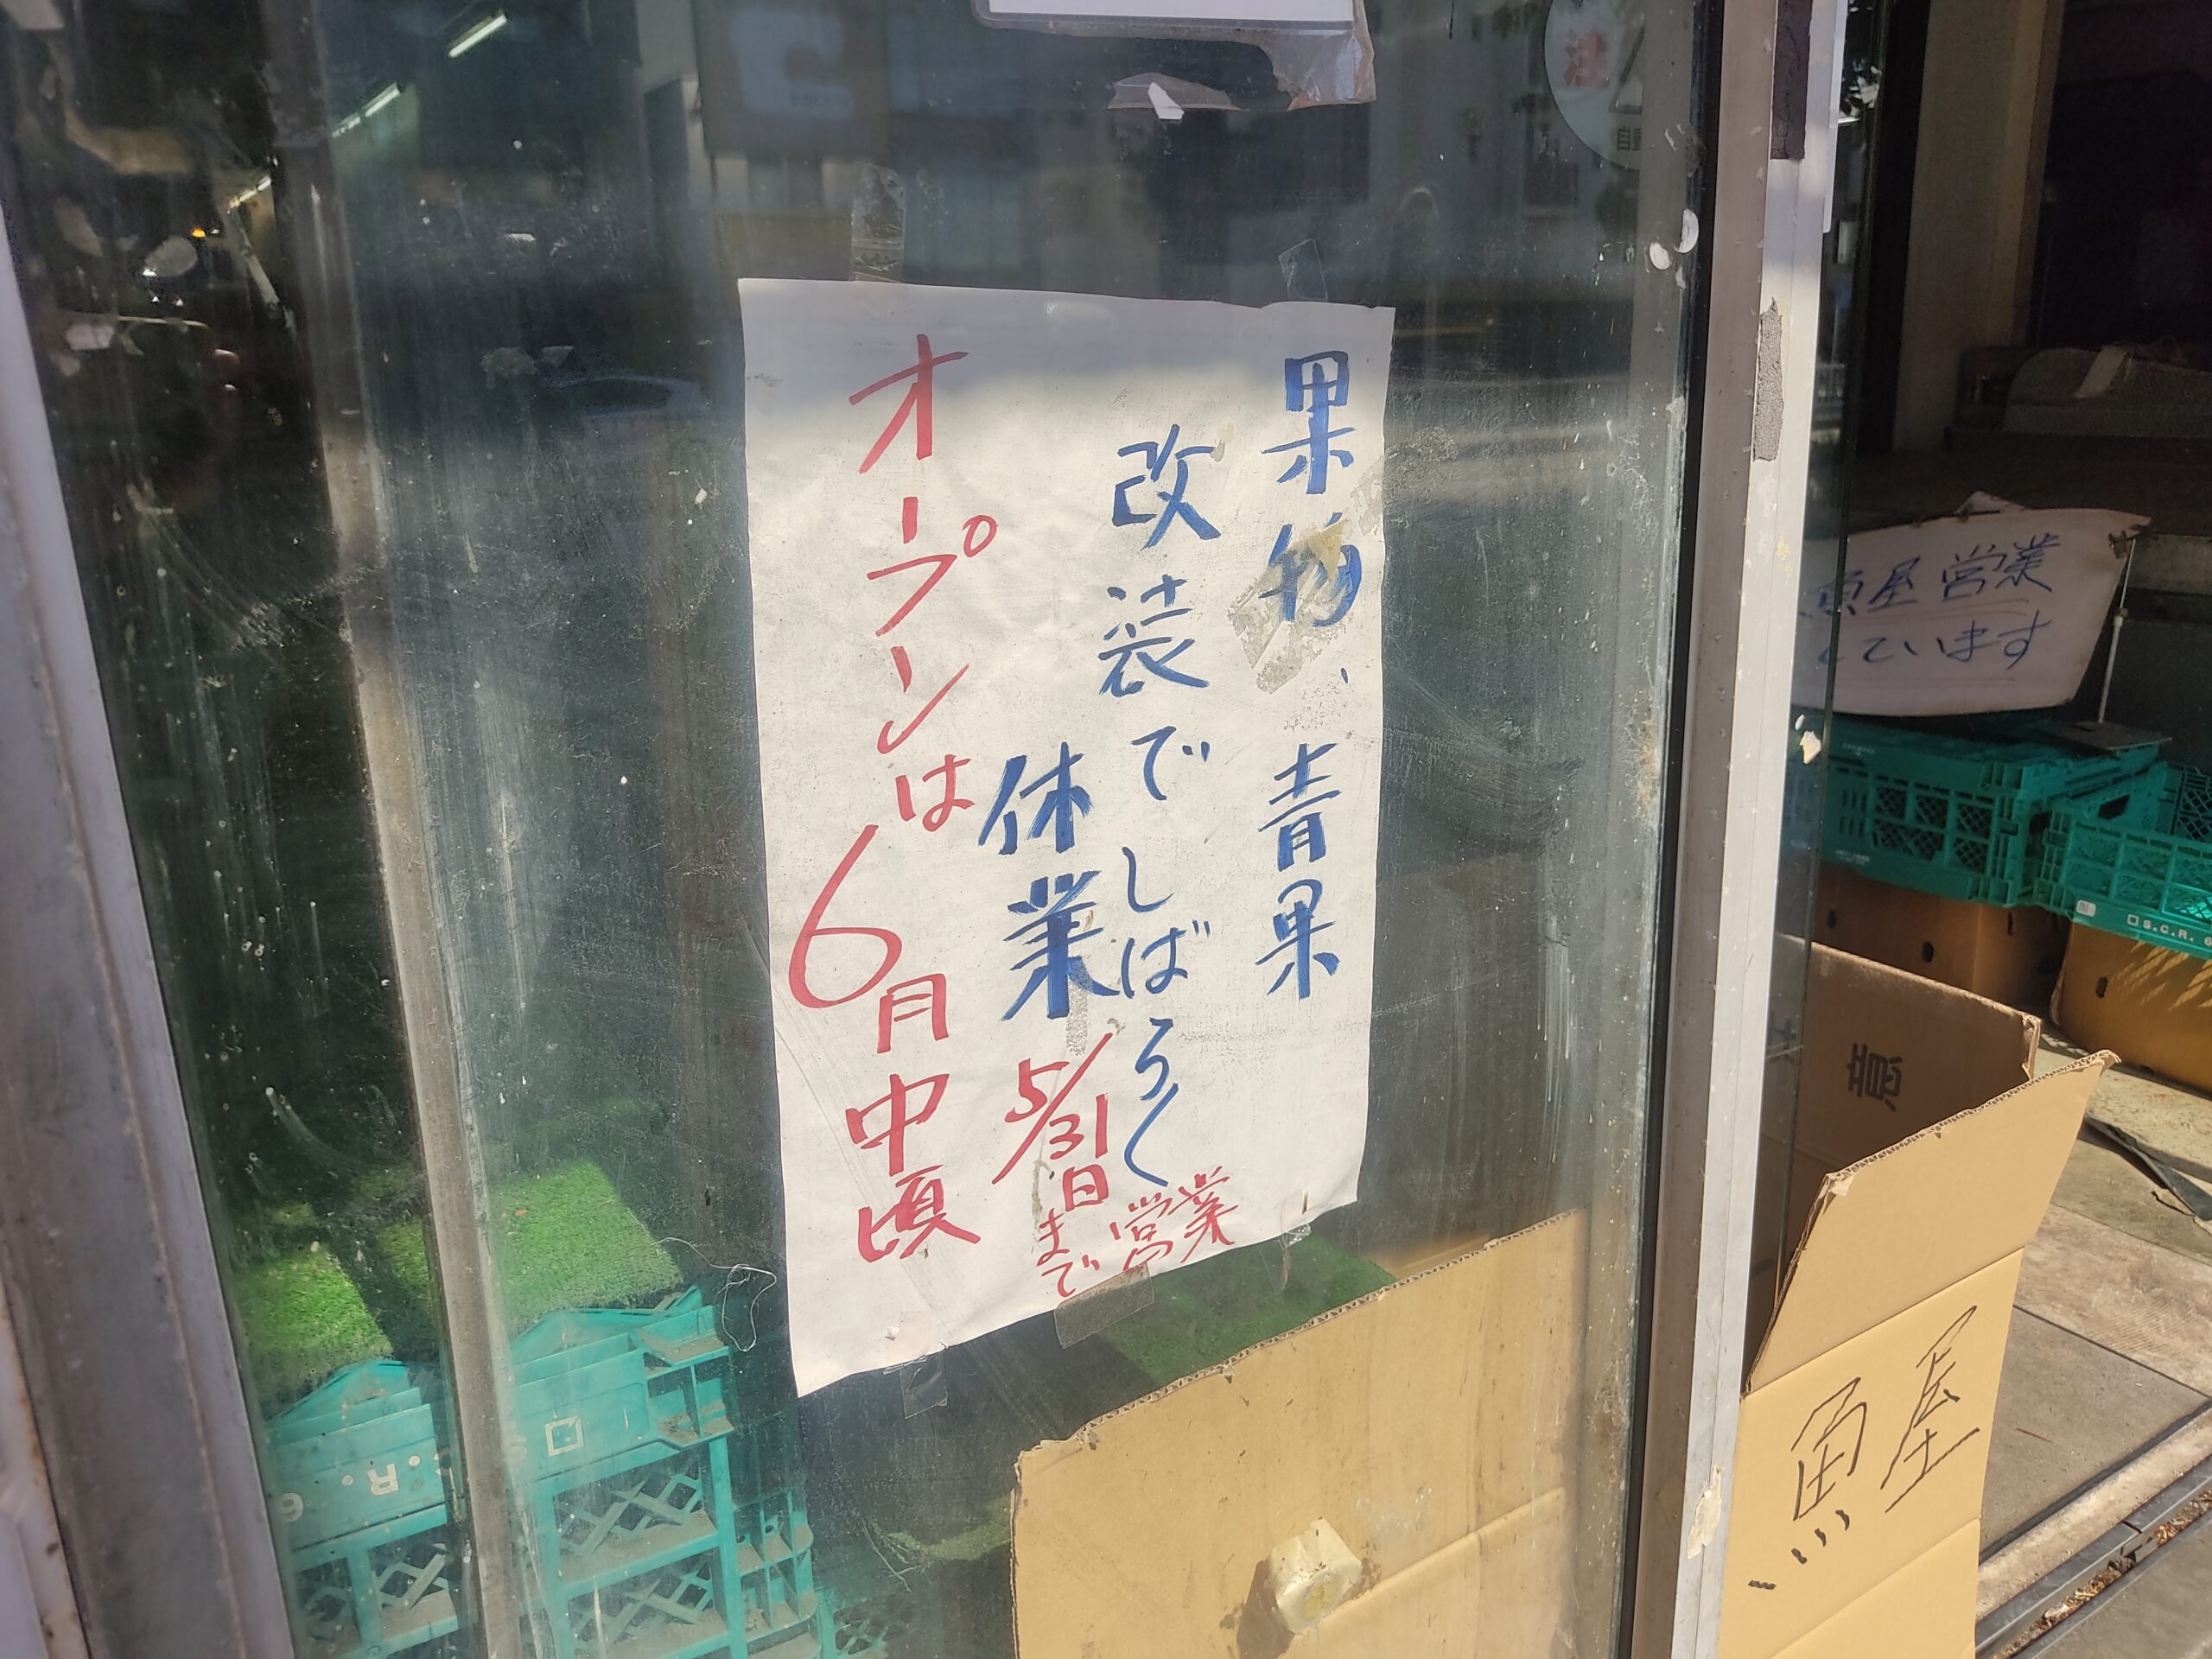 果物、青果
改装でしばらく
休業
5/31日
まで営業
オープンは6月中頃
魚屋営業
ています
魚屋
意
注
S.C.R. 6